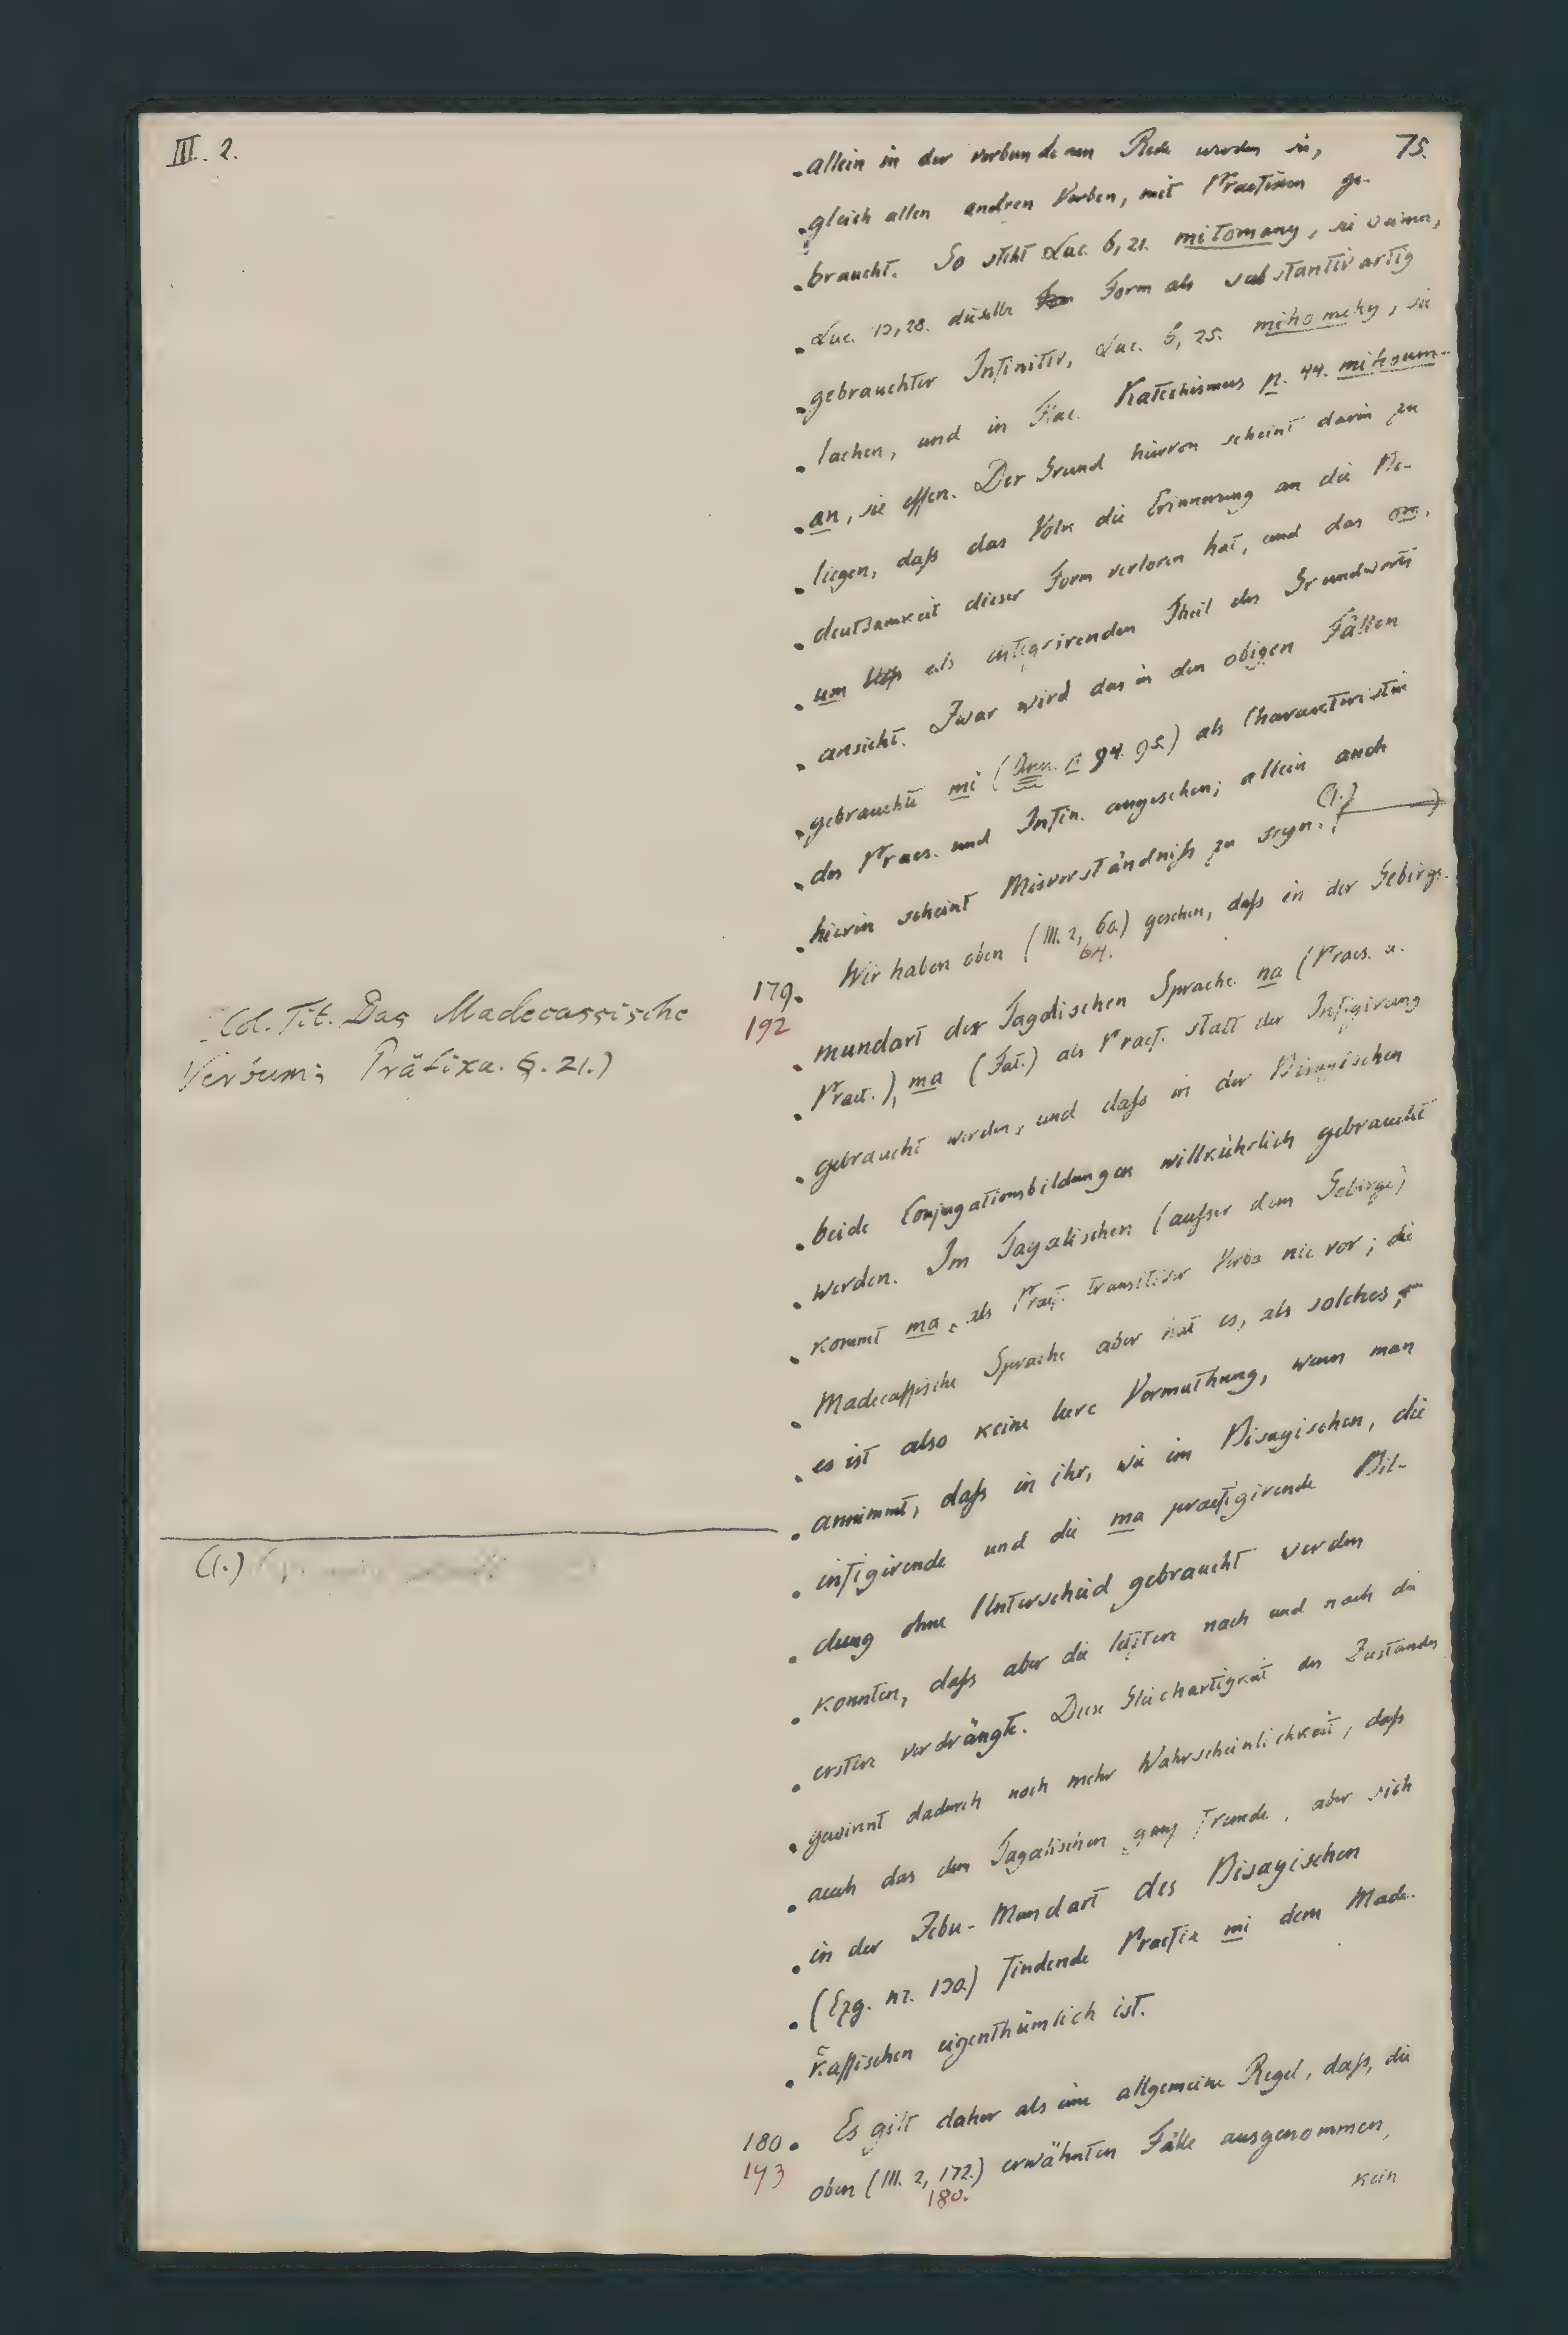 III. 2.
75.
allein in der verbundenen Rede werden sie,
gleich allen andren Verben, mit Praefixen ge-
braucht. So steht Luc. 6, 21. mitomany, sie weinen,
Luc. 13, 28. dieselbe Form als substantivartig
gebrauchter Infinitiv, Luc. 6, 25. mihomehy, sie
lachen, und in Flac. Katechismus p. 44. mihoum-
an, sie essen. Der Grund hiervon scheint darin zu
liegen, daß das Volk die Erinnerung an die Be-
deutsamkeit dieser Form verloren hat, und das om,
um bloß als integrirenden Theil des Grundworts
ansieht. Zwar wird das in den obigen Fällen
gebrauchte mi (p. 94. 95.) als Characteristik
des Praes. und Infin. angesehen; allein auch
hierin scheint Misverständniß zu seyn. (1.)
179. Wir haben oben (III. 2, 60.) gesehen, daß in der Gebirgs-
192
64.
mundart der Tagalischen Sprache na (Praes. u.
Praet.), ma (Fut.) als Praef. statt der Infigirung
gebraucht werden, und daß in der Bisayischen
beide Conjugationsbildungen willkührlich gebraucht
werden. Im Tagalischen (außer dem Gebirge)
kommt ma, als Praef. transitiver Verba nie vor; die
Madecassische Sprache aber hat es, als solches;
es ist also keine leere Vermuthung, wenn man
annimmt, daß in ihr, wie im Bisayischen, die
infigirende und die ma praefigirende Bil-
dung ohne Unterschied gebraucht werden
konnten, daß aber die letztere nach und nach die
erstere verdrängte. Diese Gleichartigkeit des Zustandes
gewinnt dadurch noch mehr Wahrscheinlichkeit, daß
auch das dem Tagalischen ganz fremde, aber sich
in der Zebu-Mundart des Bisayischen
(Ezg. nr. 130.) findende Praefix mi dem Made-
kassischen eigenthümlich ist.
180. Es gilt daher als eine allgemeine Regel, daß, die
193
oben (III. 2, 172.) erwähnten Fälle ausgenommen,
180.
kein
Col. Tit. Das Madecassische
Verbum; Präfixa. §. 21.)
(1.)